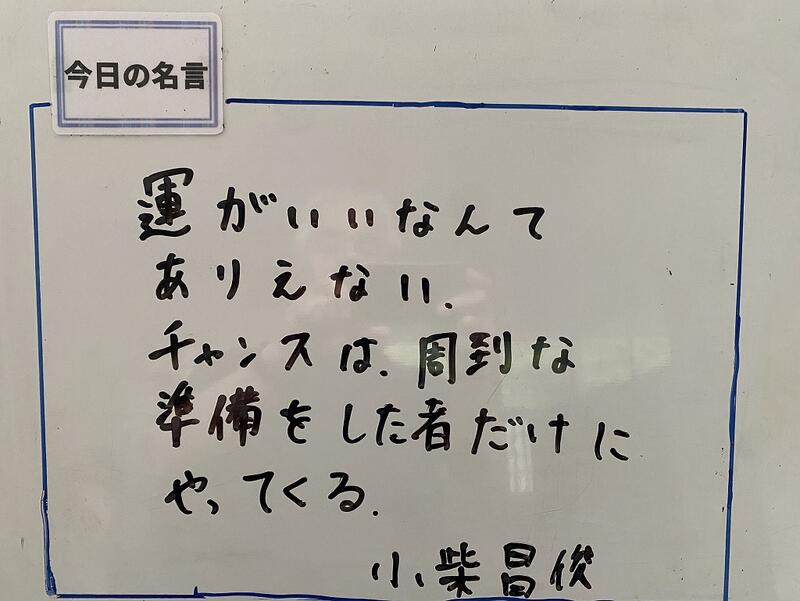 今日の名言
運がいいなんて
ありえない.
チャンスは.周到な
準備をした者だけに
やってくる.
小柴昌俊